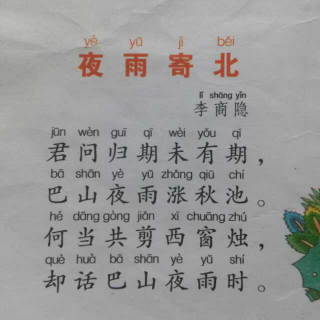 yè yǔ jì běi
夜雨寄北
lǐ shāng yǐn
李商隐
jūn wèn guī qī wèi yǒu qī
君问归期未有期，
bā shān yè yǔ zhǎng qiū chí
巴山夜雨涨秋池。
hé dāng gòng jiǎn xī chuāng zhú
何当共剪西窗烛，
què huà bā shān yè yǔ shí
却话巴山夜雨时。